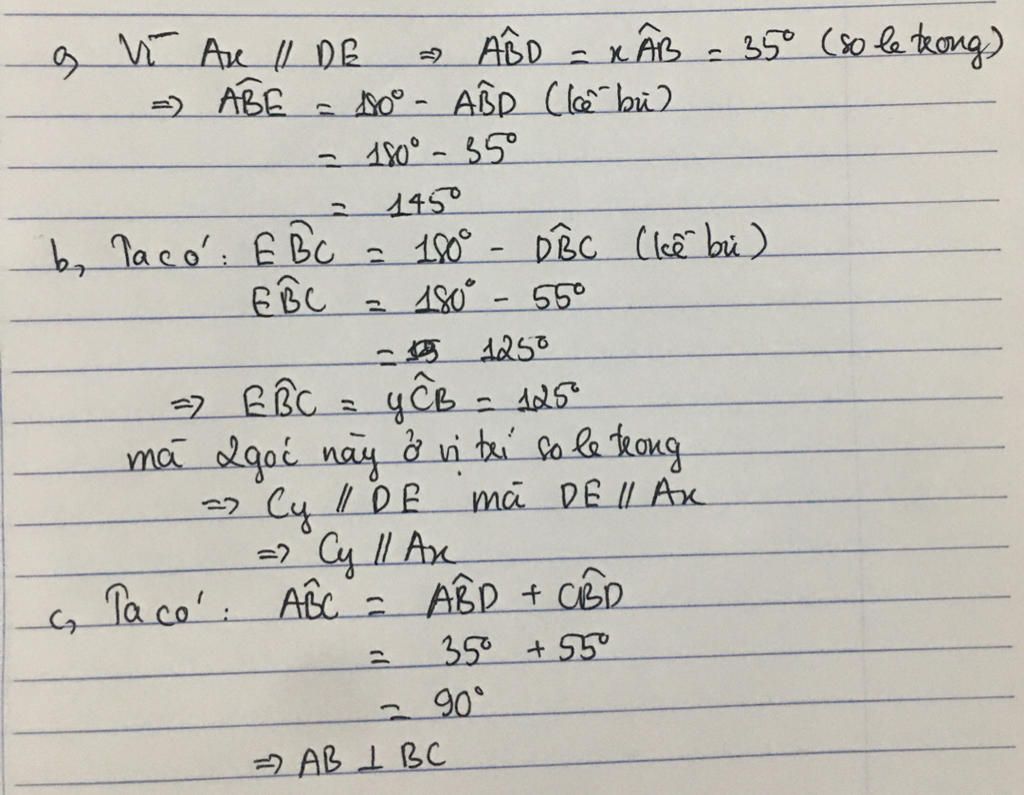 a, Vì Ax // DE ⇒ AB̂D = xÂB = 35° (so le trong)
⇒ AB̂E = 180° - AB̂D (kề bù)
= 180° - 35°
= 145°
b, Ta có: EB̂C = 180° - DB̂C (kề bù)
EB̂C = 180° - 55°
= 125°
⇒ EB̂C = yĈB = 125°
mà 2 góc này ở vị trí so le trong
⇒ Cy // DE mà DE // Ax
⇒ Cy // Ax
c, Ta có: AB̂C = AB̂D + CB̂D
= 35° + 55°
= 90°
⇒ AB ⊥ BC